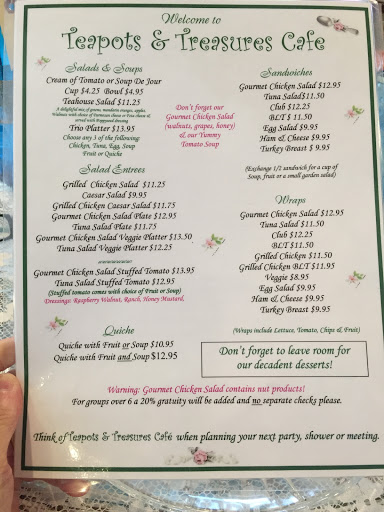 Welcome to
Teapots & Treasures Cafe
Salads & Soups
Cream of Tomato or Soup De Jour
Cup $4.25 Bowl $4.95
Teahouse Salad $11.25
A delightful mix of greens, mandarin oranges, apples,
Walnuts with choice of Parmesan cheese or Feta cheese &
served with Poppyseed dressing
Trio Platter $13.95
Choose any 3 of the following:
Chicken, Tuna, Egg, Soup
Fruit or Quiche
Salad Entrees
Grilled Chicken Salad $11.25
Caesar Salad $9.95
Grilled Chicken Caesar Salad $11.75
Gourmet Chicken Salad Plate $12.95
Tuna Salad Plate $11.75
Gourmet Chicken Salad Veggie Platter $13.50
Tuna Salad Veggie Platter $12.25
Gourmet Chicken Salad Stuffed Tomato $13.95
Tuna Salad Stuffed Tomato $12.95
(Stuffed tomato comes with choice of Fruit or Soup)
Dressings: Raspberry Walnut, Ranch, Honey Mustard,
Quiche
Quiche with Fruit or Soup $10.95
Quiche with Fruit and Soup $12.95
Don't forget our
Gourmet Chicken Salad
(walnuts, grapes, honey)
& our Yummy
Tomato Soup
Sandwiches
Gourmet Chicken Salad $12.95
Tuna Salad $11.50
Club $12.25
BLT $ 11.50
Egg Salad $9.95
Ham & Cheese $9.95
Turkey Breast $ 9.95
(Exchange 1/2 sandwich for a cup of
Soup, fruit or a small garden salad)
Wraps
Gourmet Chicken Salad $12.95
Tuna Salad $11.50
Club $12.25
BLT $11.50
Grilled Chicken $11.50
Grilled Chicken BLT $11.95
Veggie $8.95
Egg Salad $9.95
Ham & Cheese $9.95
Turkey Breast $9.95
(Wraps include Lettuce, Tomato, Chips & Fruit)
Don't forget to leave room for
our decadent desserts!
Warning: Gourmet Chicken Salad contains nut products!
For groups over 6 a 20% gratuity will be added and no separate checks please.
Think of Teapots & Treasures Café when planning your next party, shower or meeting.